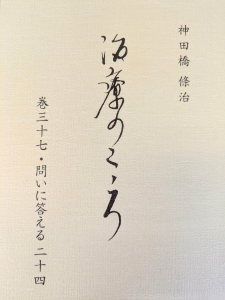 神田橋 條治
治療のこゝろ
巻三十七・問いに答える 二十四